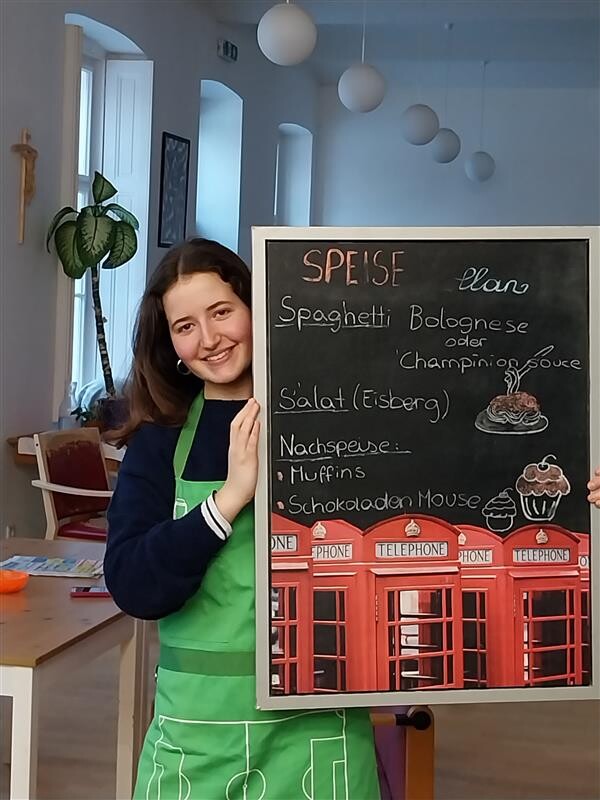 SPEISE plan
Spaghetti Bolognese
oder
Champinion souce
Salat (Eisberg)
Nachspeise:
• Muffins
• Schokoladen Mouse
ONE
PHONE
TELEPHONE
PHONE
TELEPHONE